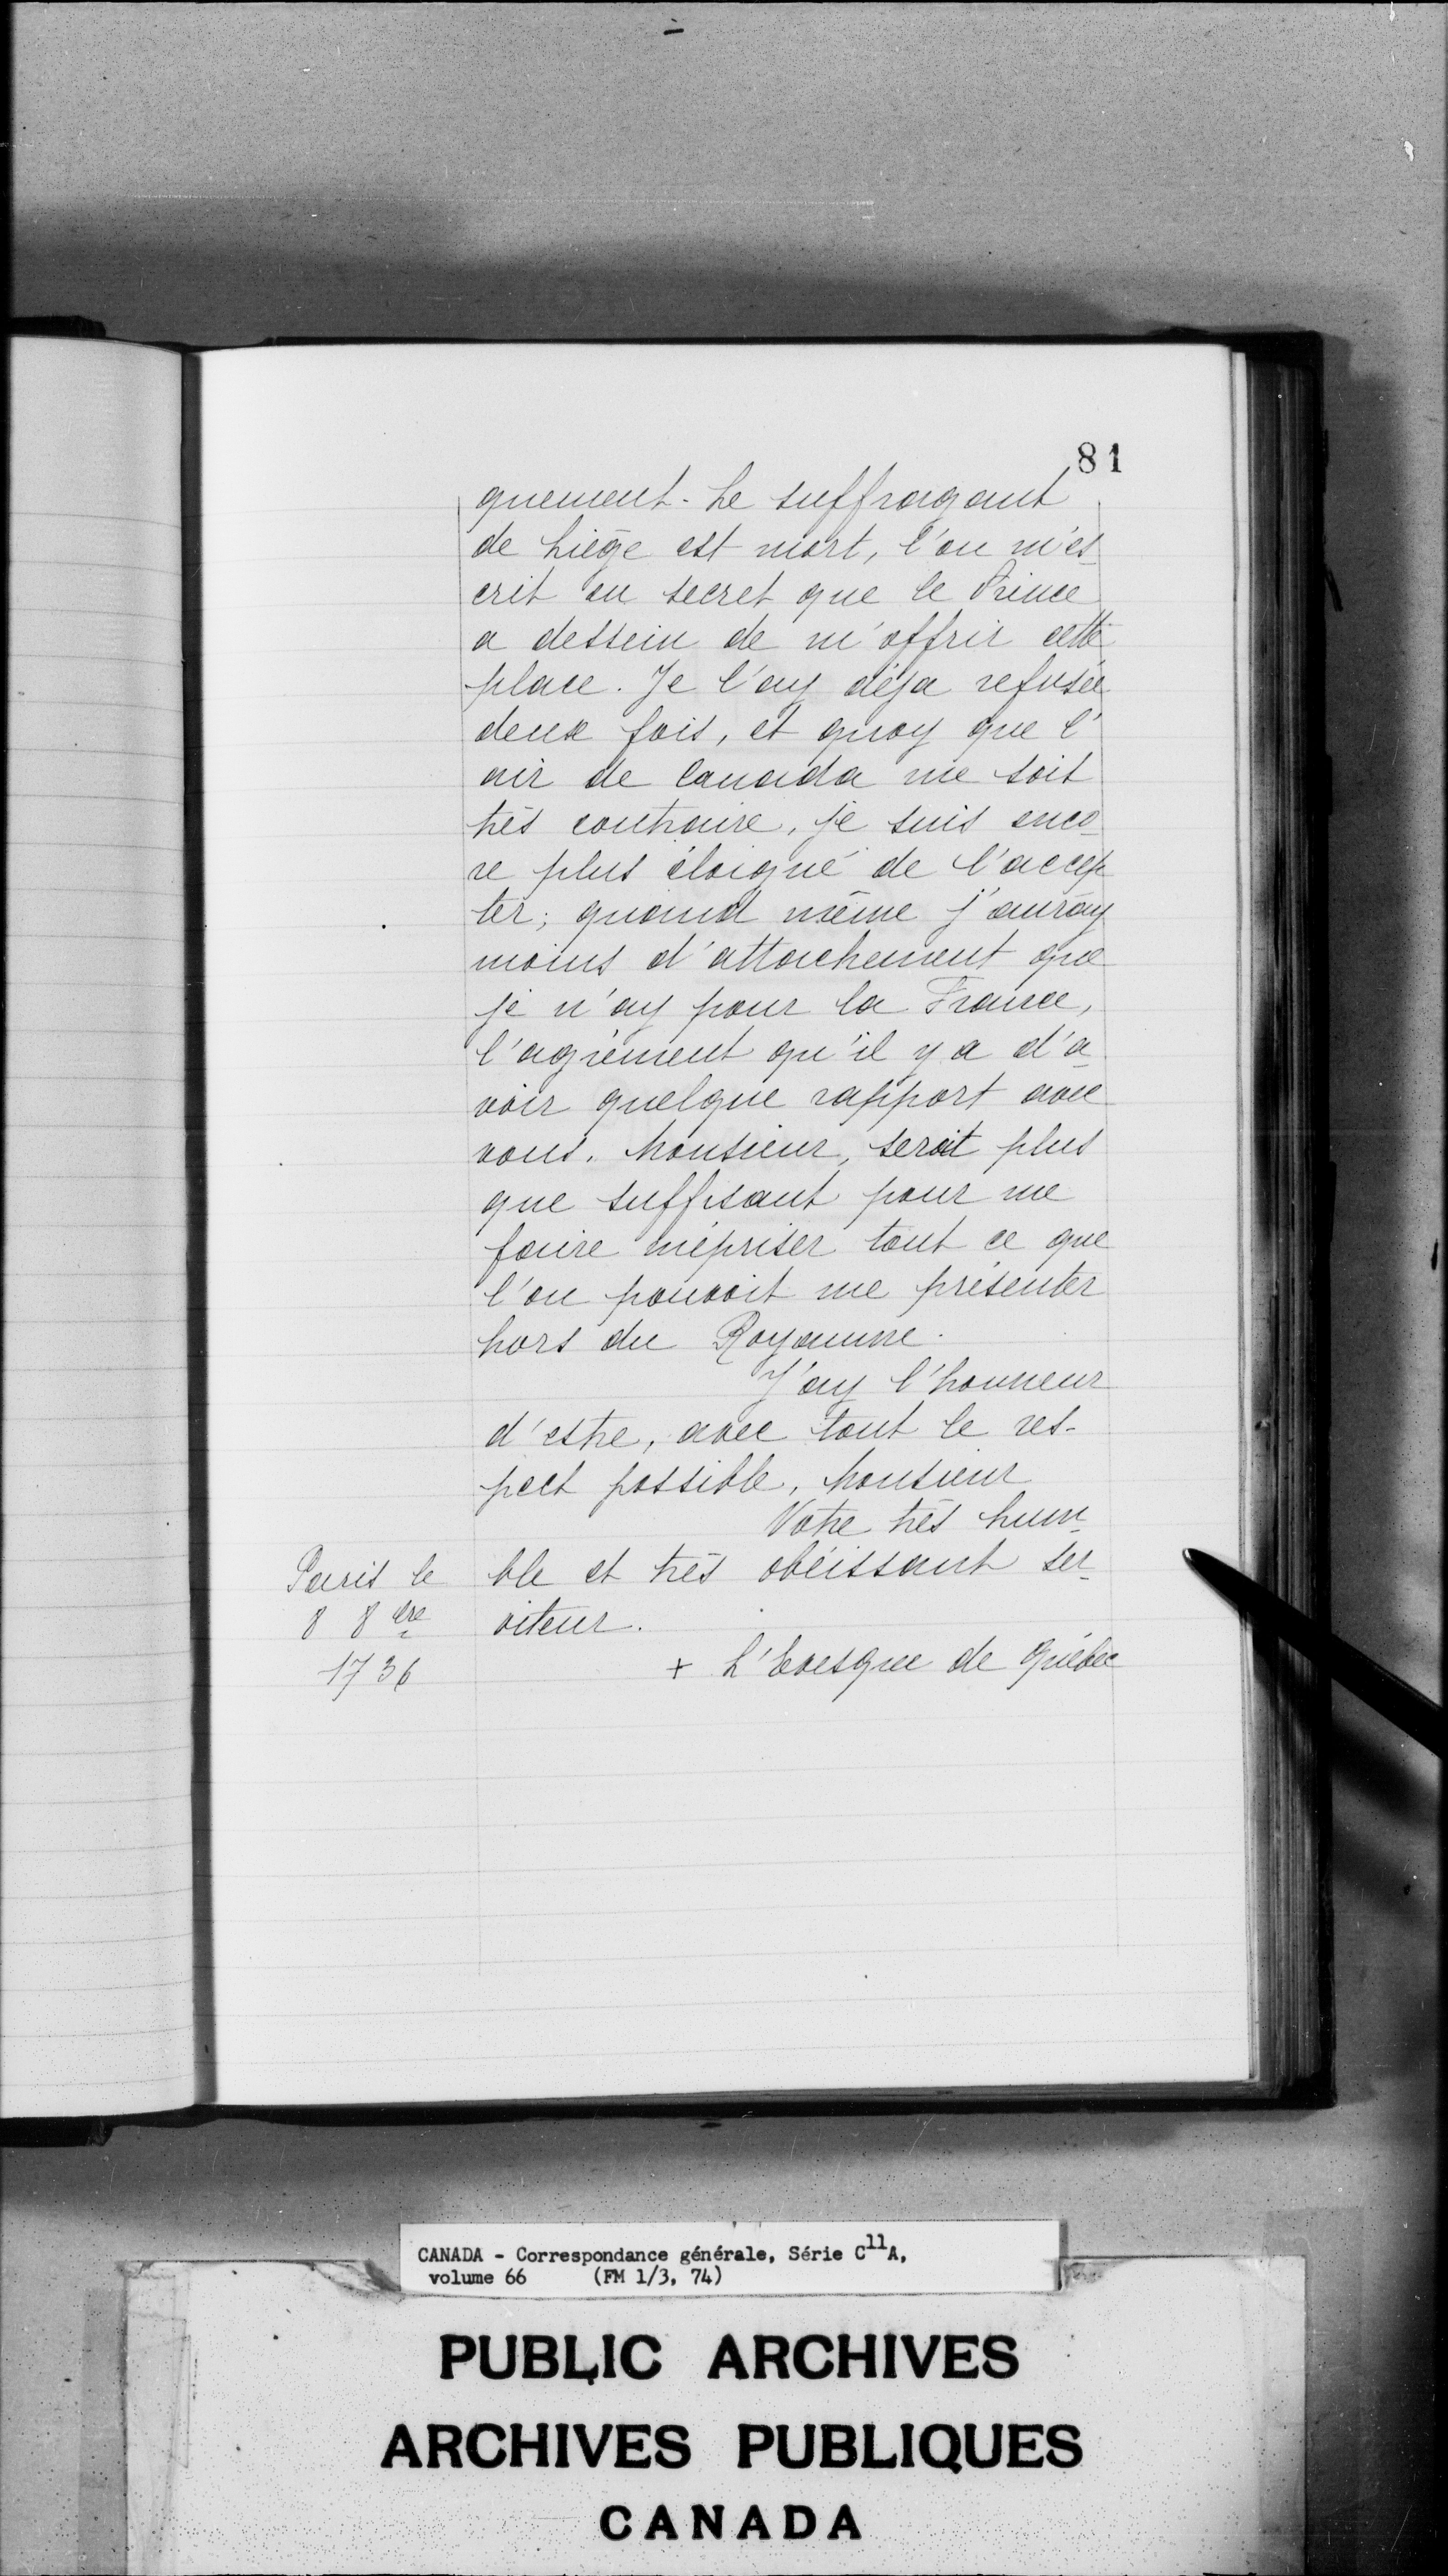 81
quement. Le suffragant
de Liège est mort, l'on m'es-
crit en secret que le Prince
a dessein de m'offrir cette
place. Je l'ay déja refusée
deux fois, et quoy que l'
air de Canada me soit
très contraire, je suis enco-
re plus éloigné de l'accep
ter; quand même j'auray
moins d'attachement que
je n'ay pour la France,
l'agrément qu'il y a d'a-
voir quelque rapport avec
vous, Monsieur, serait plus
que suffisant pour me
faire mépriser tout ce que
l'on pouvoit me présenter
hors du Royaume.
J'ay l'honneur
d'estre, avec tout le res-
pect possible, Monsieur
Votre très hum-
ble et très obéissant ser-
viteur.
+ L'Evesque de Québec
Paris le
8 8bre
1736
CANADA - Correspondance générale, Série C11A,
volume 66 (FM 1/3, 74)
PUBLIC ARCHIVES
ARCHIVES PUBLIQUES
CANADA